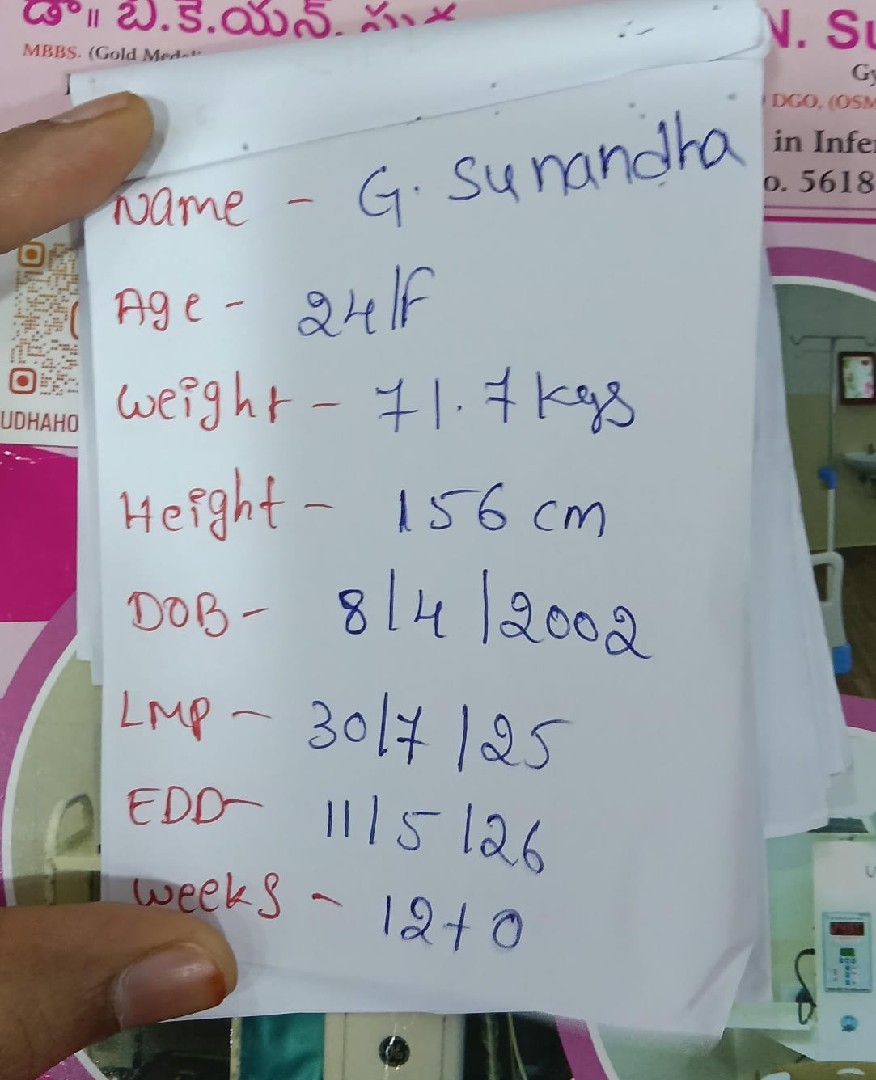 డా॥ బి.కే.యన్.
MBBS. (Gold
N. Su
Gy
DGO, (OSM
in Infe
o. 5618
UDHAHO
Name - G. Sunandha
Age - 24/F
Weight - 71.7 kgs
Height - 156 cm
DOB - 8/4/2002
LMP - 30/7/25
EDD - 11/5/26
Weeks - 12+0